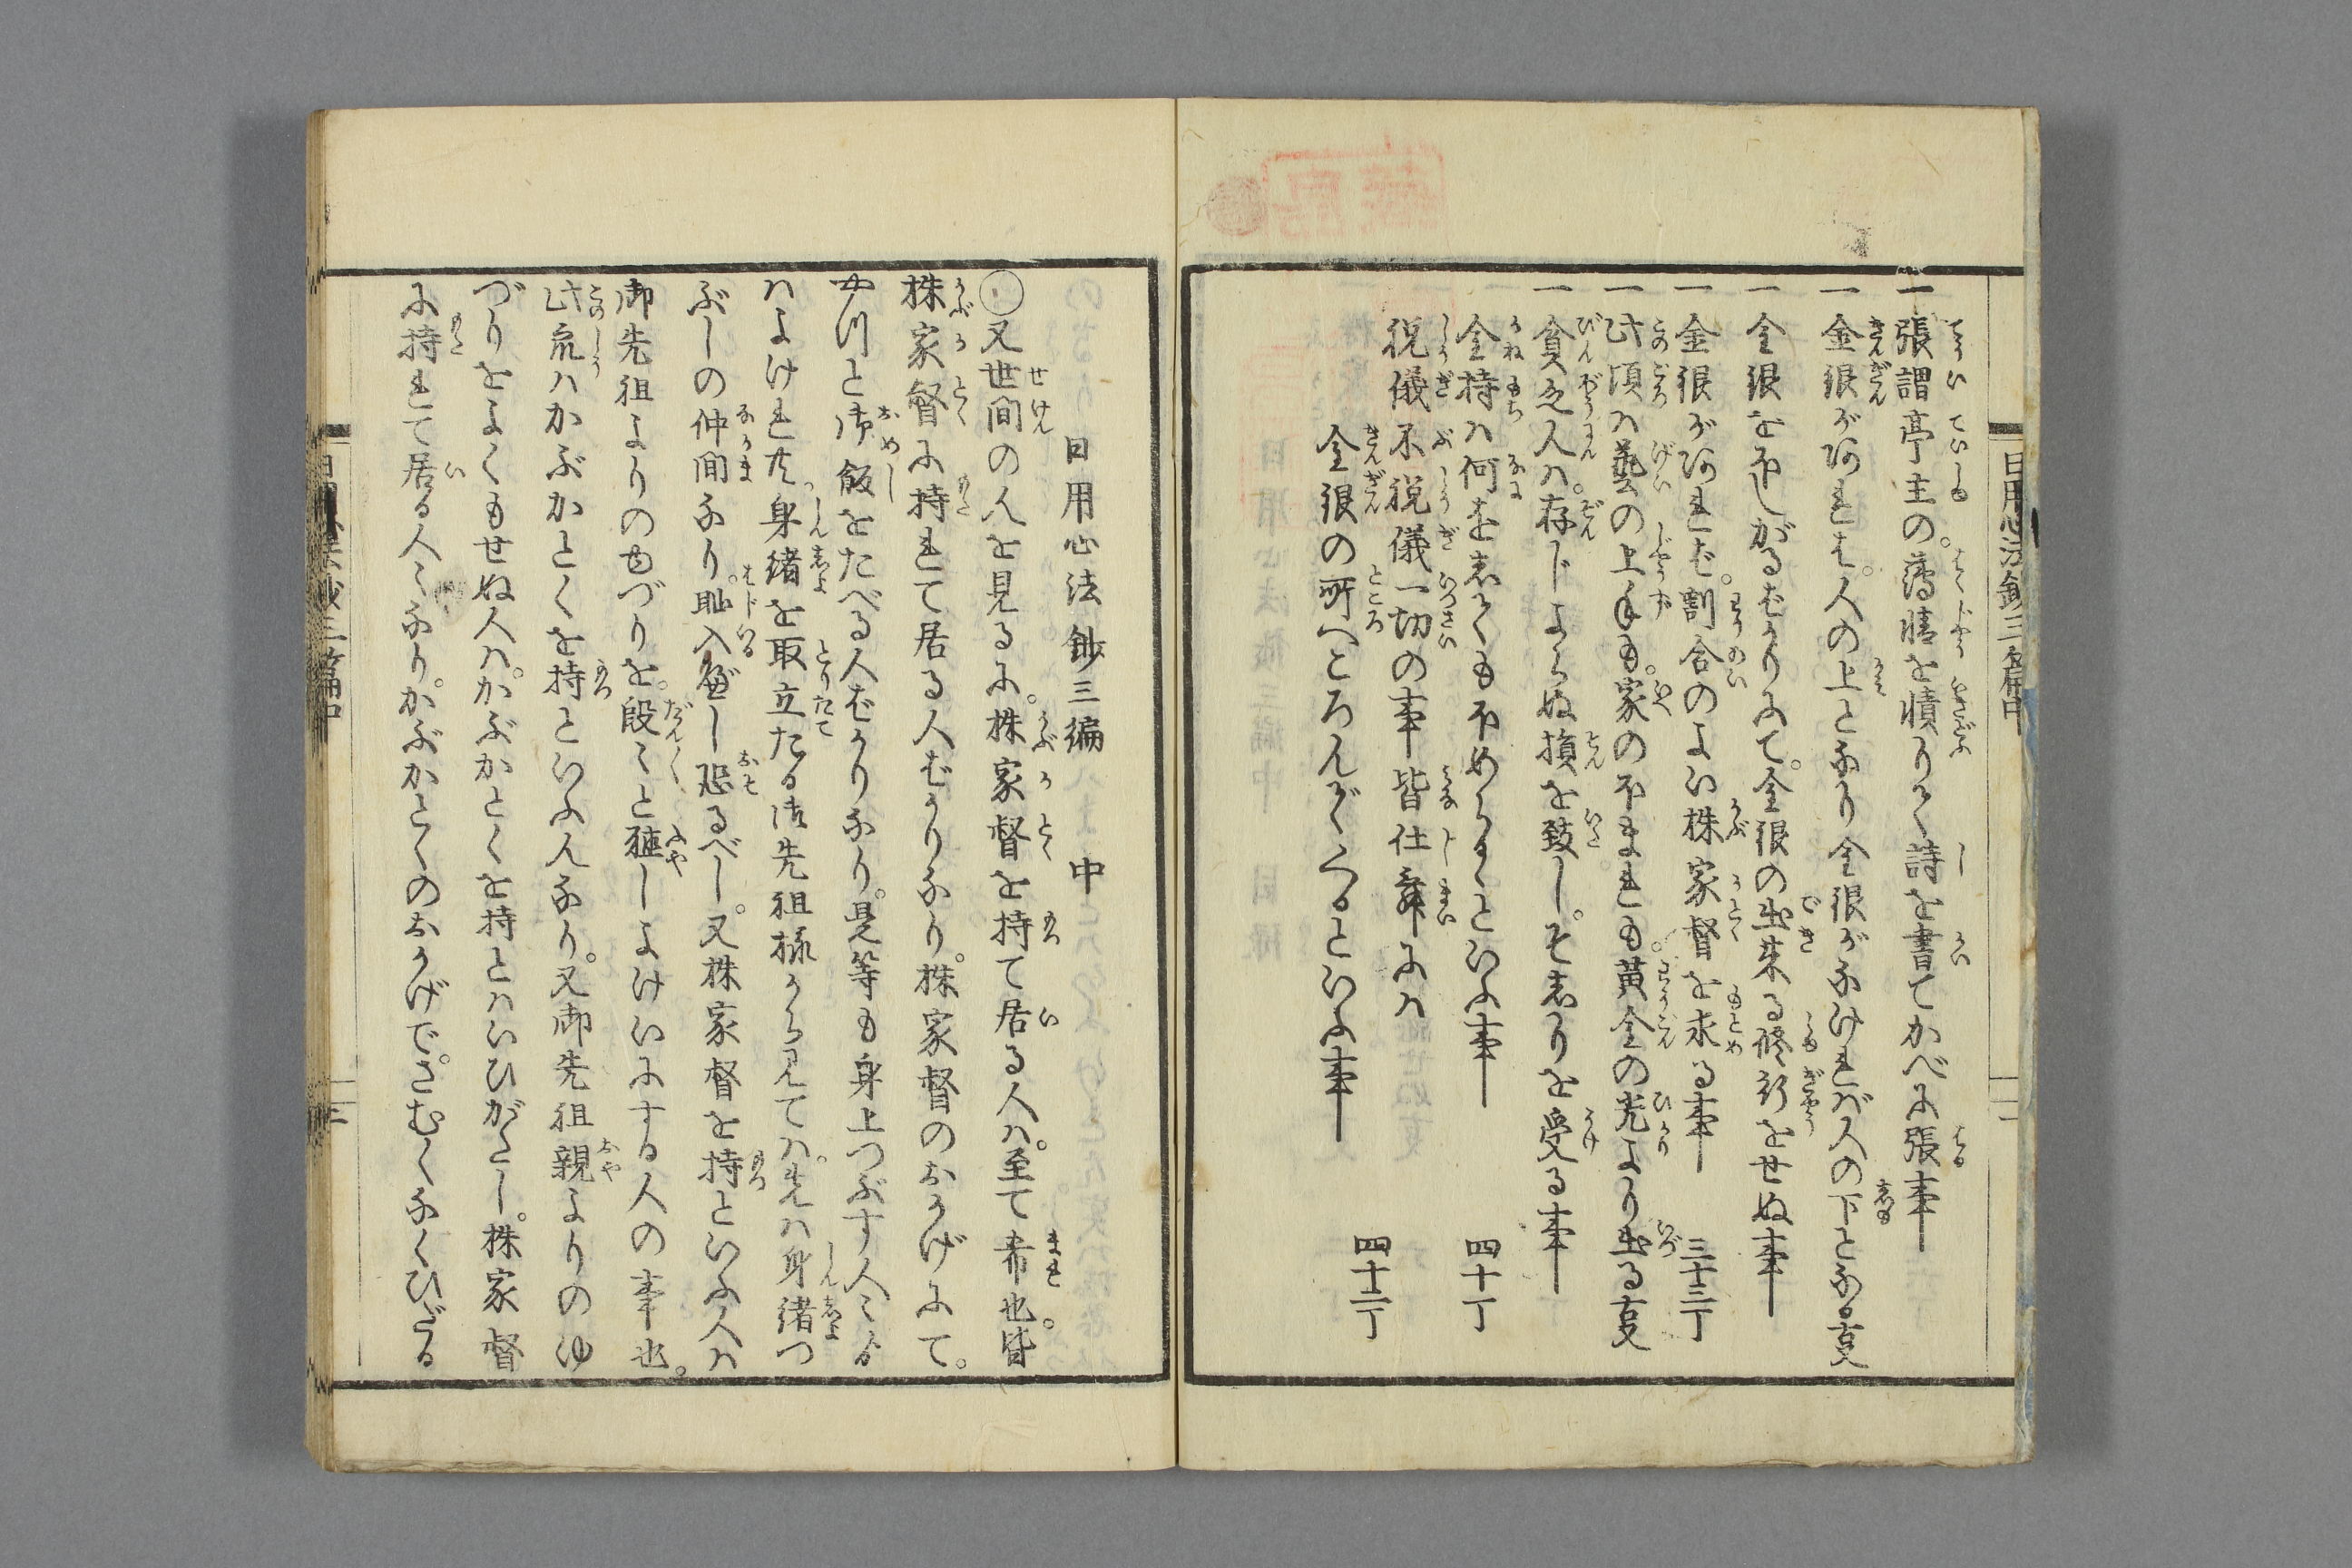 一張謂亭主の。薄情を憤りて詩を書てかべに張事
一金銀があれば。人の上となり金銀がなければ人の下となる事
一金銀をほしがるばかりにて。金銀の出来る修行をせぬ事
一金銀があれば。割合のよい株家督を求る事 三十三丁
一此頃は藝の上手も。家のほまれも。黄金の光より出る事
一貧乏人は。存じよらぬ損を致し。そしりを受る事
金持は何をしてもほめらるゝといふ事 四十丁
祝儀不祝儀一切の事皆仕舞には
金銀の所へころんがくるといふ事 四十二丁
日用心法鈔三編中
日用心法鈔三編 中
○又世間の人を見るに。株家督を持て居る人は。至て希也。皆
株家督に持れて居る人ばかりなり。株家督のおかげにて。
やつと御飯をたべる人ばかりなり。是等も身上つぶす人々より
はよけれ共身緒を取立たる御先祖様から見ては。先は身緒つ
ぶしの仲間なり。恥入べし恐るべし。又株家督を持といふ人は
御先祖よりのゆづりを。段々と殖しよけいにする人の事也。
此衆はかぶかとくを持といふ人なり。又御先祖親よりのゆ
づりをよくもせぬ人は。かぶかとくを持とはいひがたし。株家督
に持れて居る人々なり。かぶかとくのおかげで。さむくなくひだる
日用心法鈔三篇中